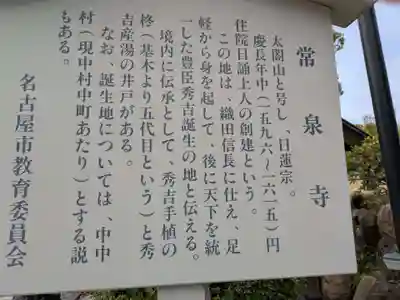 常泉寺
太閤山と号し、日蓮宗。
慶長年中(一五九六〜一六一五)円
住院日誦上人の創建という。
この地は、織田信長に仕え、足
軽から身を起して、後に天下を統
一した豊臣秀吉誕生の地と伝える。
境内に伝承として、秀吉手植の
柊(基木より五代目という)と秀
吉産湯の井戸がある。
なお、誕生地については、中中
村(現中村中町あたり)とする説
もある。
名古屋市教育委員会